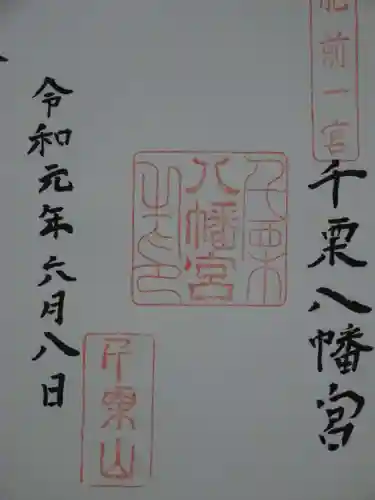 肥前一宮
千栗八幡宮
千栗
八幡宮
之印
千栗山
令和元年六月八日